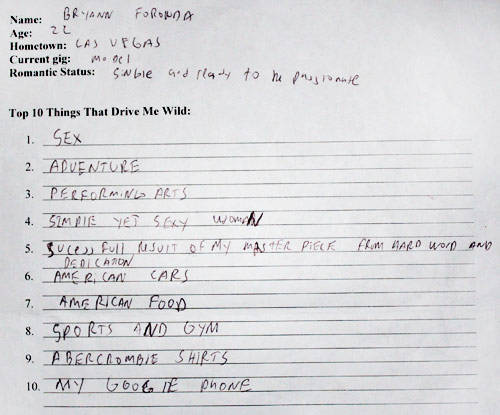 Name: BRYANN FORONDA
Age: 22
Hometown: LAS VEGAS
Current gig: model
Romantic Status: SINGLE and ready to be passionate
Top 10 Things That Drive Me Wild:
1. SEX
2. ADVENTURE
3. PERFORMING ARTS
4. SIMPLE YET SEXY WOMAN
5. SUCESS FULL RESULT OF MY MASTER PIECE FROM HARD WORD AND
DEDICATION
6. AMERICAN CARS
7. AMERICAN FOOD
8. SPORTS AND GYM
9. ABERCROMBIE SHIRTS
10. MY GOOGLE PHONE